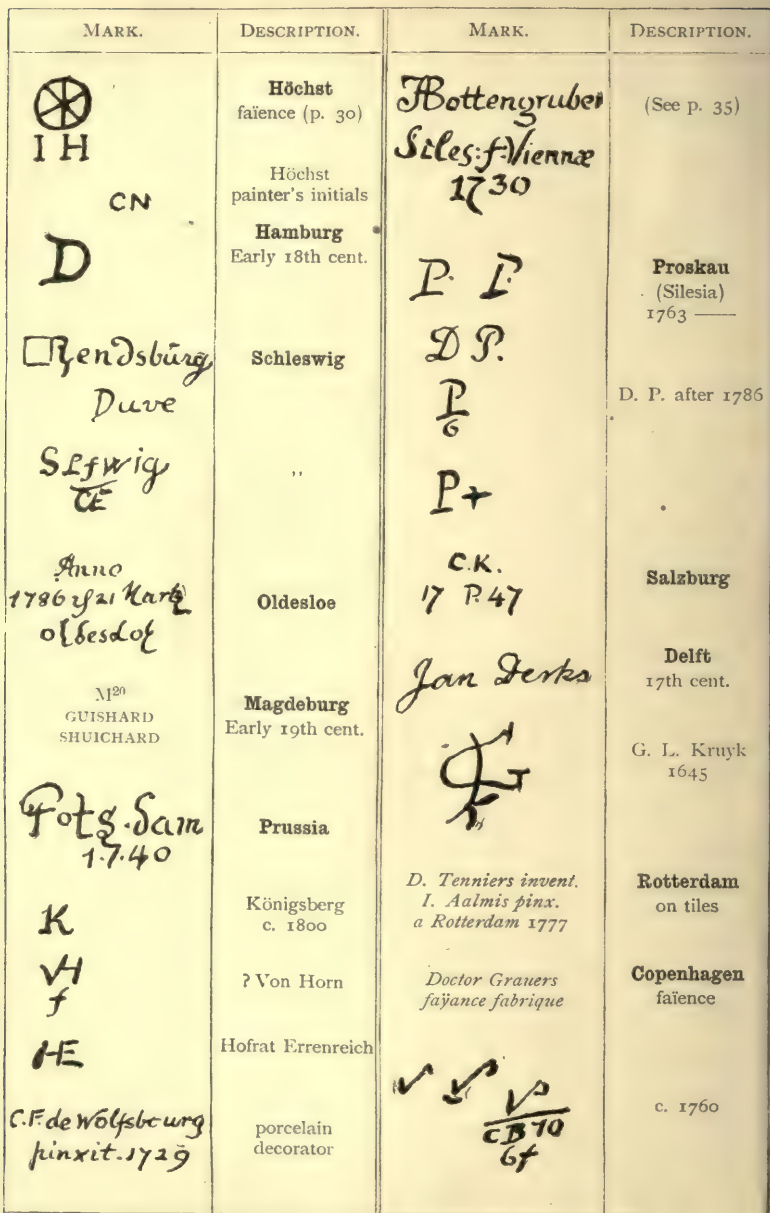 MARK.
DESCRIPTION.
I H
Höchst
faïence (p. 30)
CN
Höchst
painter's initials
D
Hamburg
Early 18th cent.
Rendsbürg
Duve
Schleswig
Slſwig
CE
,,
Anno
1786 21
Oldesloe
M²⁰
GUISHARD
SHUICHARD
Magdeburg
Early 19th cent.
Potsdam
1.7.40
Prussia
K
Königsberg
c. 1800
VH
f
? Von Horn
HE
Hofrat Errenreich
C.F. de Wolfsbourg
pinxit. 1729
porcelain
decorator
MARK.
DESCRIPTION.
Bottengruber
Siles: f. Viennæ
1730
(See p. 35)
P. P.
Proskau
(Silesia)
1763 ——
D P.
P
6
D. P. after 1786
P+
C.K.
17 P. 47
Salzburg
Jan Derks
Delft
17th cent.
G. L. Kruyk
1645
D. Tenniers invent.
I. Aalmis pinx.
a Rotterdam 1777
Rotterdam
on tiles
Doctor Grauers
faÿance fabrique
Copenhagen
faïence
CB 70
6f
c. 1760